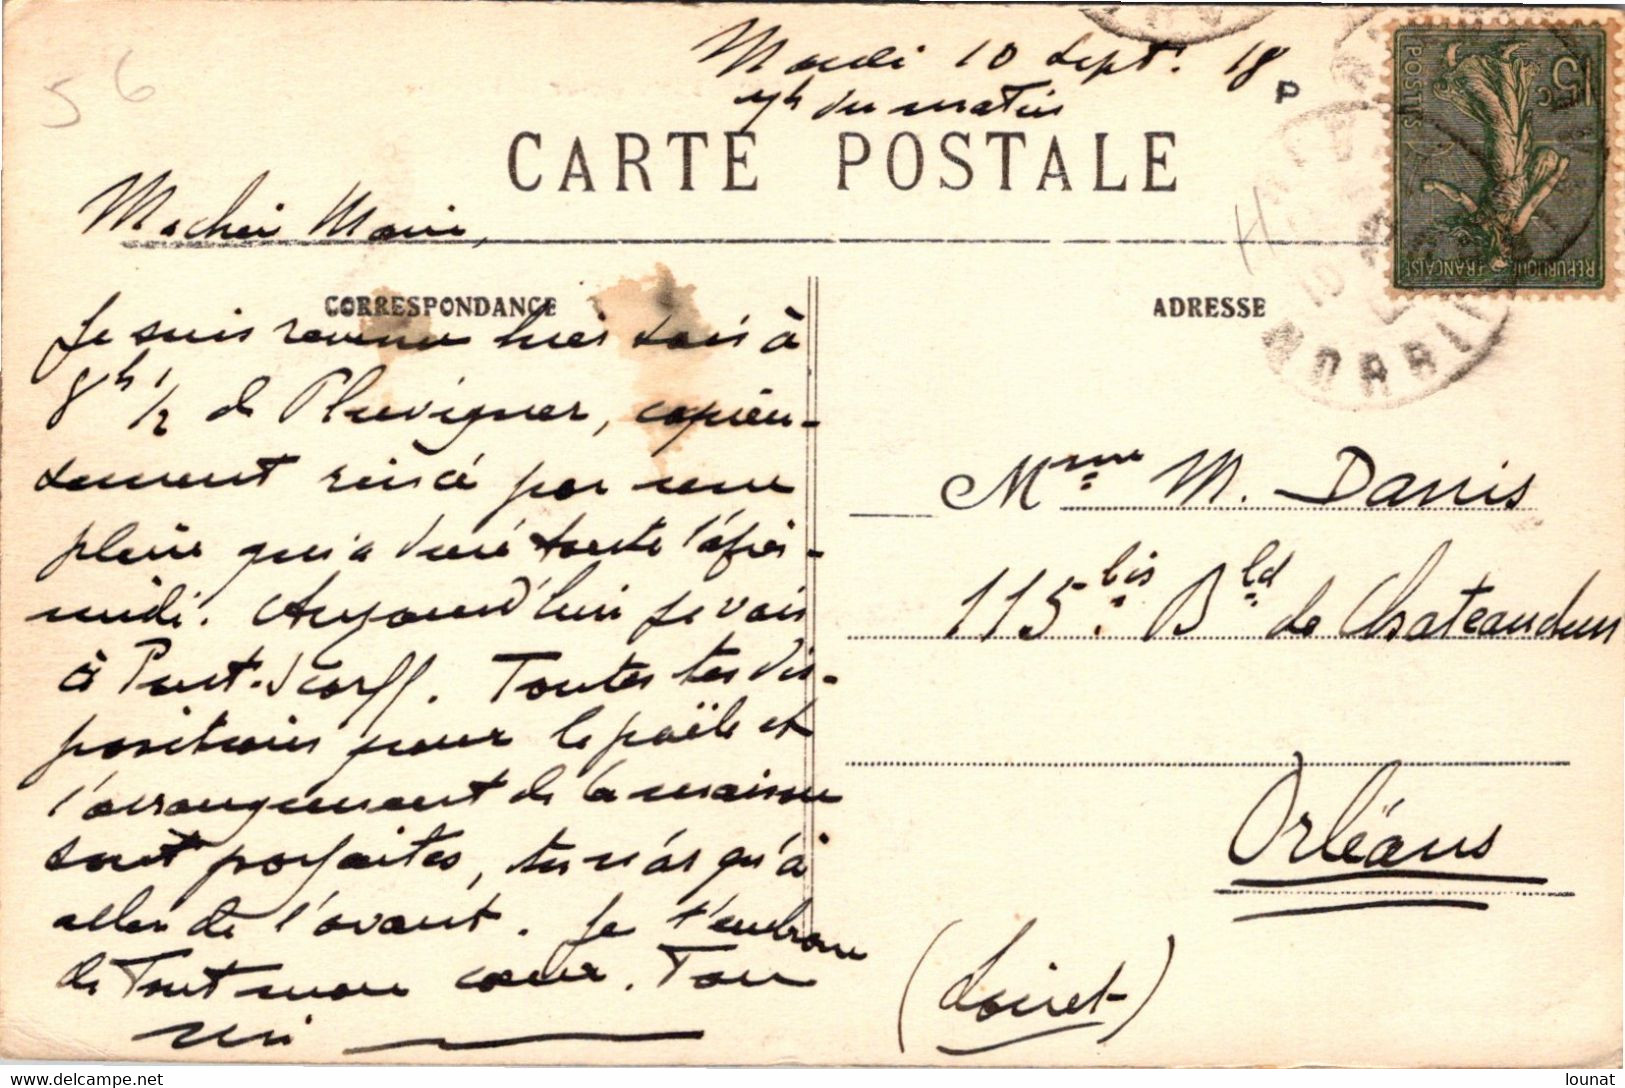 56
Mardi 10 Sept. 18
7h du matin
P
CARTE POSTALE
Ma chère Marie,
CORRESPONDANCE
Je suis revenu hier soir à
8h 1/2 de Pluvigner, copieu-
sement rincé par une
pluie qui a duré toute l'après-
midi. Aujourd'hui je vais
à Pont-Scorff. Toutes tes dis-
positions pour le poële et
l'arrangement de la maison
sont parfaites, tu n'as qu'à
aller de l'avant. Je t'embrasse
de Tout mon cœur. Ton
ADRESSE
15c
POSTES
REPUBLIQUE FRANÇAISE
10
MORBIHAN
Mme M. Danis
115 bis Bld de Chateaudun
Orléans
(Loiret)
www.delcampe.net
lounat